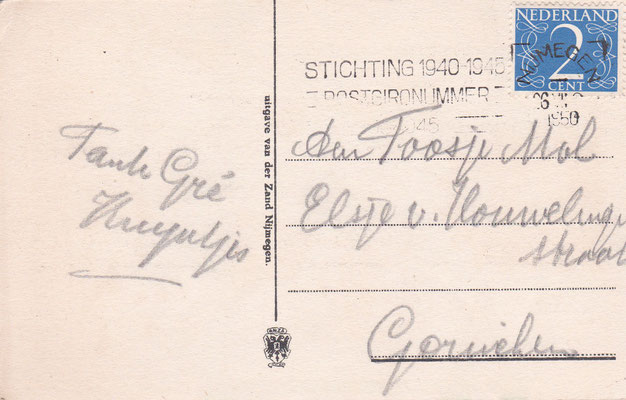 NEDERLAND
2
CENT
NIJMEGEN
1950
STICHTING 1940-1945
POSTGIRONUMMER
45
Tante Gré
uitgave van der Zand Nijmegen.
Aan Toosje Mol
Elsje v. Houwelinge
straat
Gorinchem